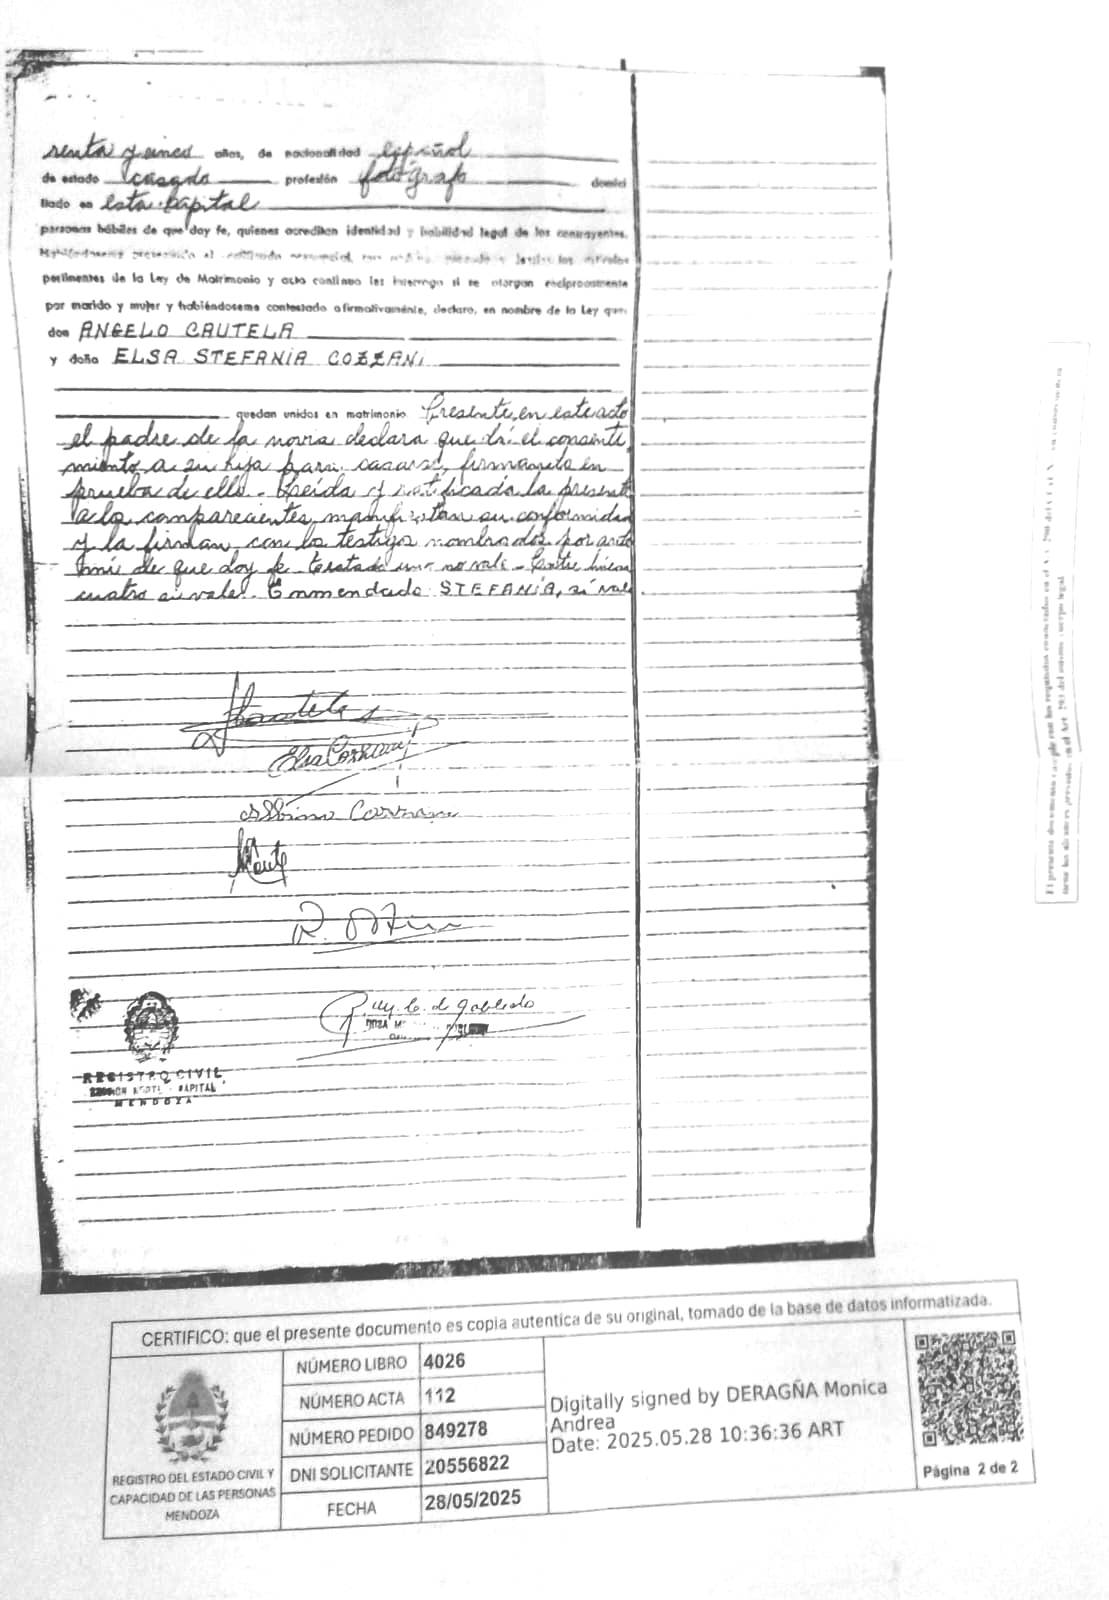 renta y cinco años, de nacionalidad español
de estado casado profesión fotógrafo domici
liado en esta Capital
personas hábiles de que doy fe, quienes acreditan identidad y habilidad legal de los contrayentes.
Habiéndoseme presentado el certificado prenupcial,
pertinentes de la Ley de Matrimonio y acto continuo les interrogo si se otorgan recíprocamente
por marido y mujer y habiéndoseme contestado afirmativamente, declaro, en nombre de la Ley que:
don ANGELO CAUTELA
y doña ELSA STEFANIA COZZANI
quedan unidos en matrimonio Presente en este acto
el padre de la novia declara que dá el consenti
miento a su hija para casarse, firmando en
prueba de ello. Leída y ratificada la presente
a los comparecientes manifiestan su conformidad
y la firman con los testigos nombrados por ante
mí de que doy fe. Testado una no vale. Entre líneas
cuatro si vale. Enmendado STEFANIA, si vale
Elsa Cozzani
Albino Cozzani
REGISTRO CIVIL
CAPITAL
MENDOZA
CERTIFICO: que el presente documento es copia autentica de su original, tomado de la base de datos informatizada.
REGISTRO DEL ESTADO CIVIL Y
CAPACIDAD DE LAS PERSONAS
MENDOZA
NÚMERO LIBRO 4026
NÚMERO ACTA 112
NÚMERO PEDIDO 849278
DNI SOLICITANTE 20556822
FECHA 28/05/2025
Digitally signed by DERAGÑA Monica
Andrea
Date: 2025.05.28 10:36:36 ART
Página 2 de 2
El presente documento cumple con los requisitos